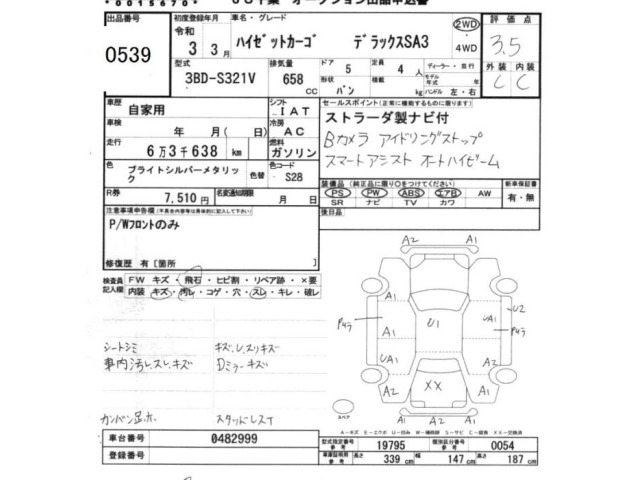 *0015670*
出品番号 0539
初度登録年月 令和 3 3月
車名・グレード ハイゼットカーゴ デラックスSA3
2WD ・ 4WD
評価点 3.5
外装 内装 C C
型式 3BD-S321V
排気量 658 CC
ドア 5
形状 バン
定員 4 人
積載 kg
ディーラー・並行
モデル年式 年
ハンドル 左・右
車歴 自家用
シフト IAT
車検 年 月( 日)
冷房 AC
走行 6万3千638 km
燃料 ガソリン
色 ブライトシルバーメタリック
色替
色コード S28
R券 7,510 円
名変通知期限 月 日
セールスポイント(正常に機能するものに限ります)
ストラーダ製ナビ付
Bカメラ アイドリングストップ
スマートアシスト オートハイビーム
装備品 (純正品に限り○をつけてください)
PS PW ABS エアB AW
SR ナビ TV カワ
新車保証書
有・無
後日品
注意事項申告欄(不具合内容は具体的に記入して下さい)
P/Wフロントのみ
修復歴 有〔箇所 〕
検査員記入欄
FW キズ ・ 飛石 ・ ヒビ割 ・ リペア跡 ・ ×要
内装 キズ ・ 汚レ ・ コゲ ・ 穴 ・ スレ ・ キレ ・ 破レ
シートシミ キズ、レスリキズ
車内汚レ、スレ、キズ Dミラーキズ
A2 A1
A1 A1 U2
Pｷﾘ U1 UA1
A1
UA1 A1
A2 XX A2
A2 A1
スペア
A-キズ E-エクボ U-凹み W-補修跡 S-サビ C-腐食 XX-交換済
車台番号 0482999
登録番号
型式指定番号 参考 19795
類別区分番号 参考 0054
車庫証明用 参考 長さ 339 cm 幅 147 cm 高さ 187 cm